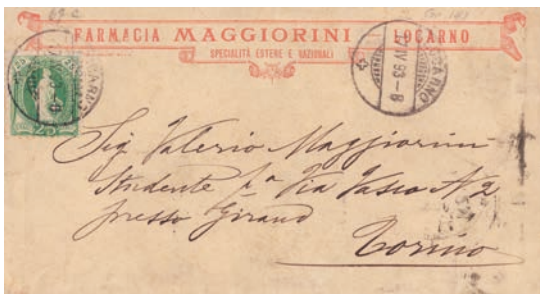 69 c
FARMACIA MAGGIORINI LOCARNO
SPECIALITÀ ESTERE E NAZIONALI
25
LOCARNO
IV 93 – 8
Sig Valerio Maggiorini
Studente Via Vasco N 2
presso Giraud
Torino